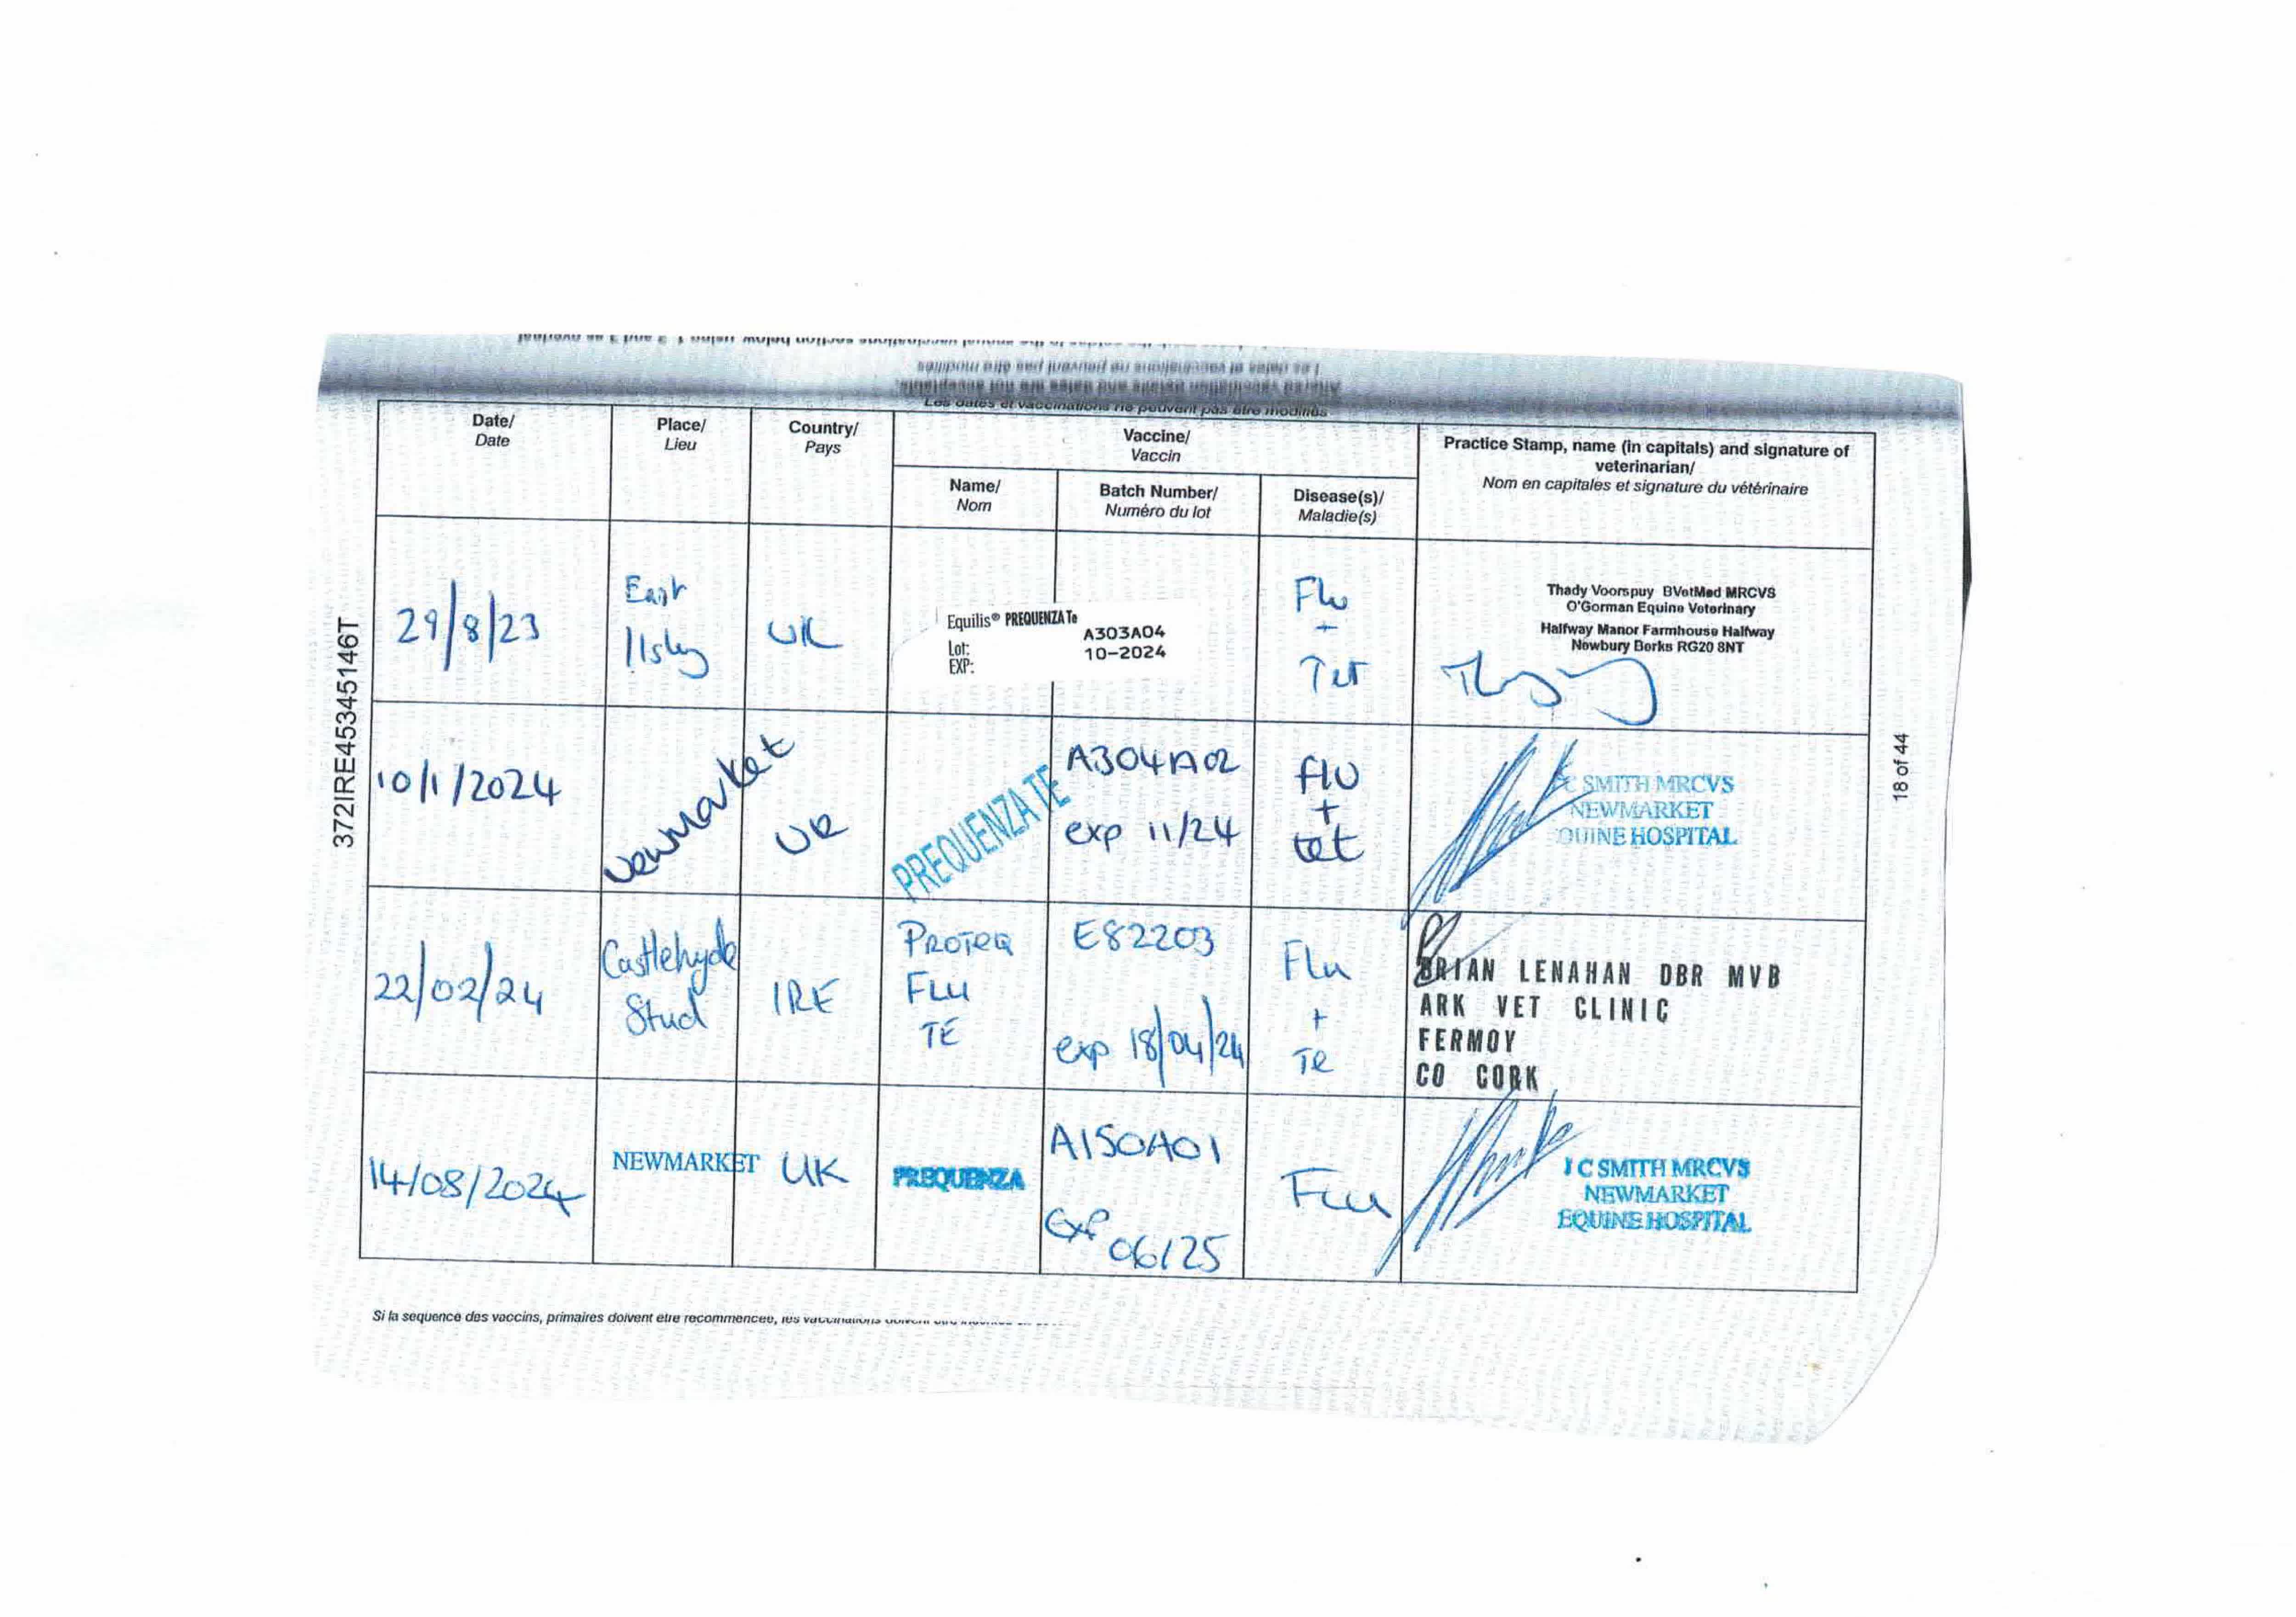 Les dates et vaccinations ne peuvent pas être modifiés
Date/
Date
Place/
Lieu
Country/
Pays
Vaccine/
Vaccin
Name/
Nom
Batch Number/
Numéro du lot
Disease(s)/
Maladie(s)
Practice Stamp, name (in capitals) and signature of
veterinarian/
Nom en capitales et signature du vétérinaire
29/8/23
East
Ilsley
UK
Equilis® PREQUENZA Te
A303A04
Lot:
10-2024
EXP:
Flu
+
Tet
Thady Voorspuy BVetMed MRCVS
O'Gorman Equine Veterinary
Halfway Manor Farmhouse Halfway
Newbury Berks RG20 8NT
10/1/2024
Newmarket
UK
PREQUENZA TE
A304A02
exp 11/24
flu
+
tet
C SMITH MRCVS
NEWMARKET
QUINE HOSPITAL
22/02/24
Castlehyde
Stud
IRE
PROTEQ
FLU
TE
E82203
exp 18/04/24
Flu
+
Te
BRIAN LENAHAN DBR MVB
ARK VET CLINIC
FERMOY
CO CORK
14/08/2024
NEWMARKET
UK
PREQUENZA
A150A01
Exp
06/25
Flu
J C SMITH MRCVS
NEWMARKET
EQUINE HOSPITAL
Si la sequence des vaccins, primaires doivent etre recommencee, les vaccinations doivent
372IRE45345146T
18 of 44